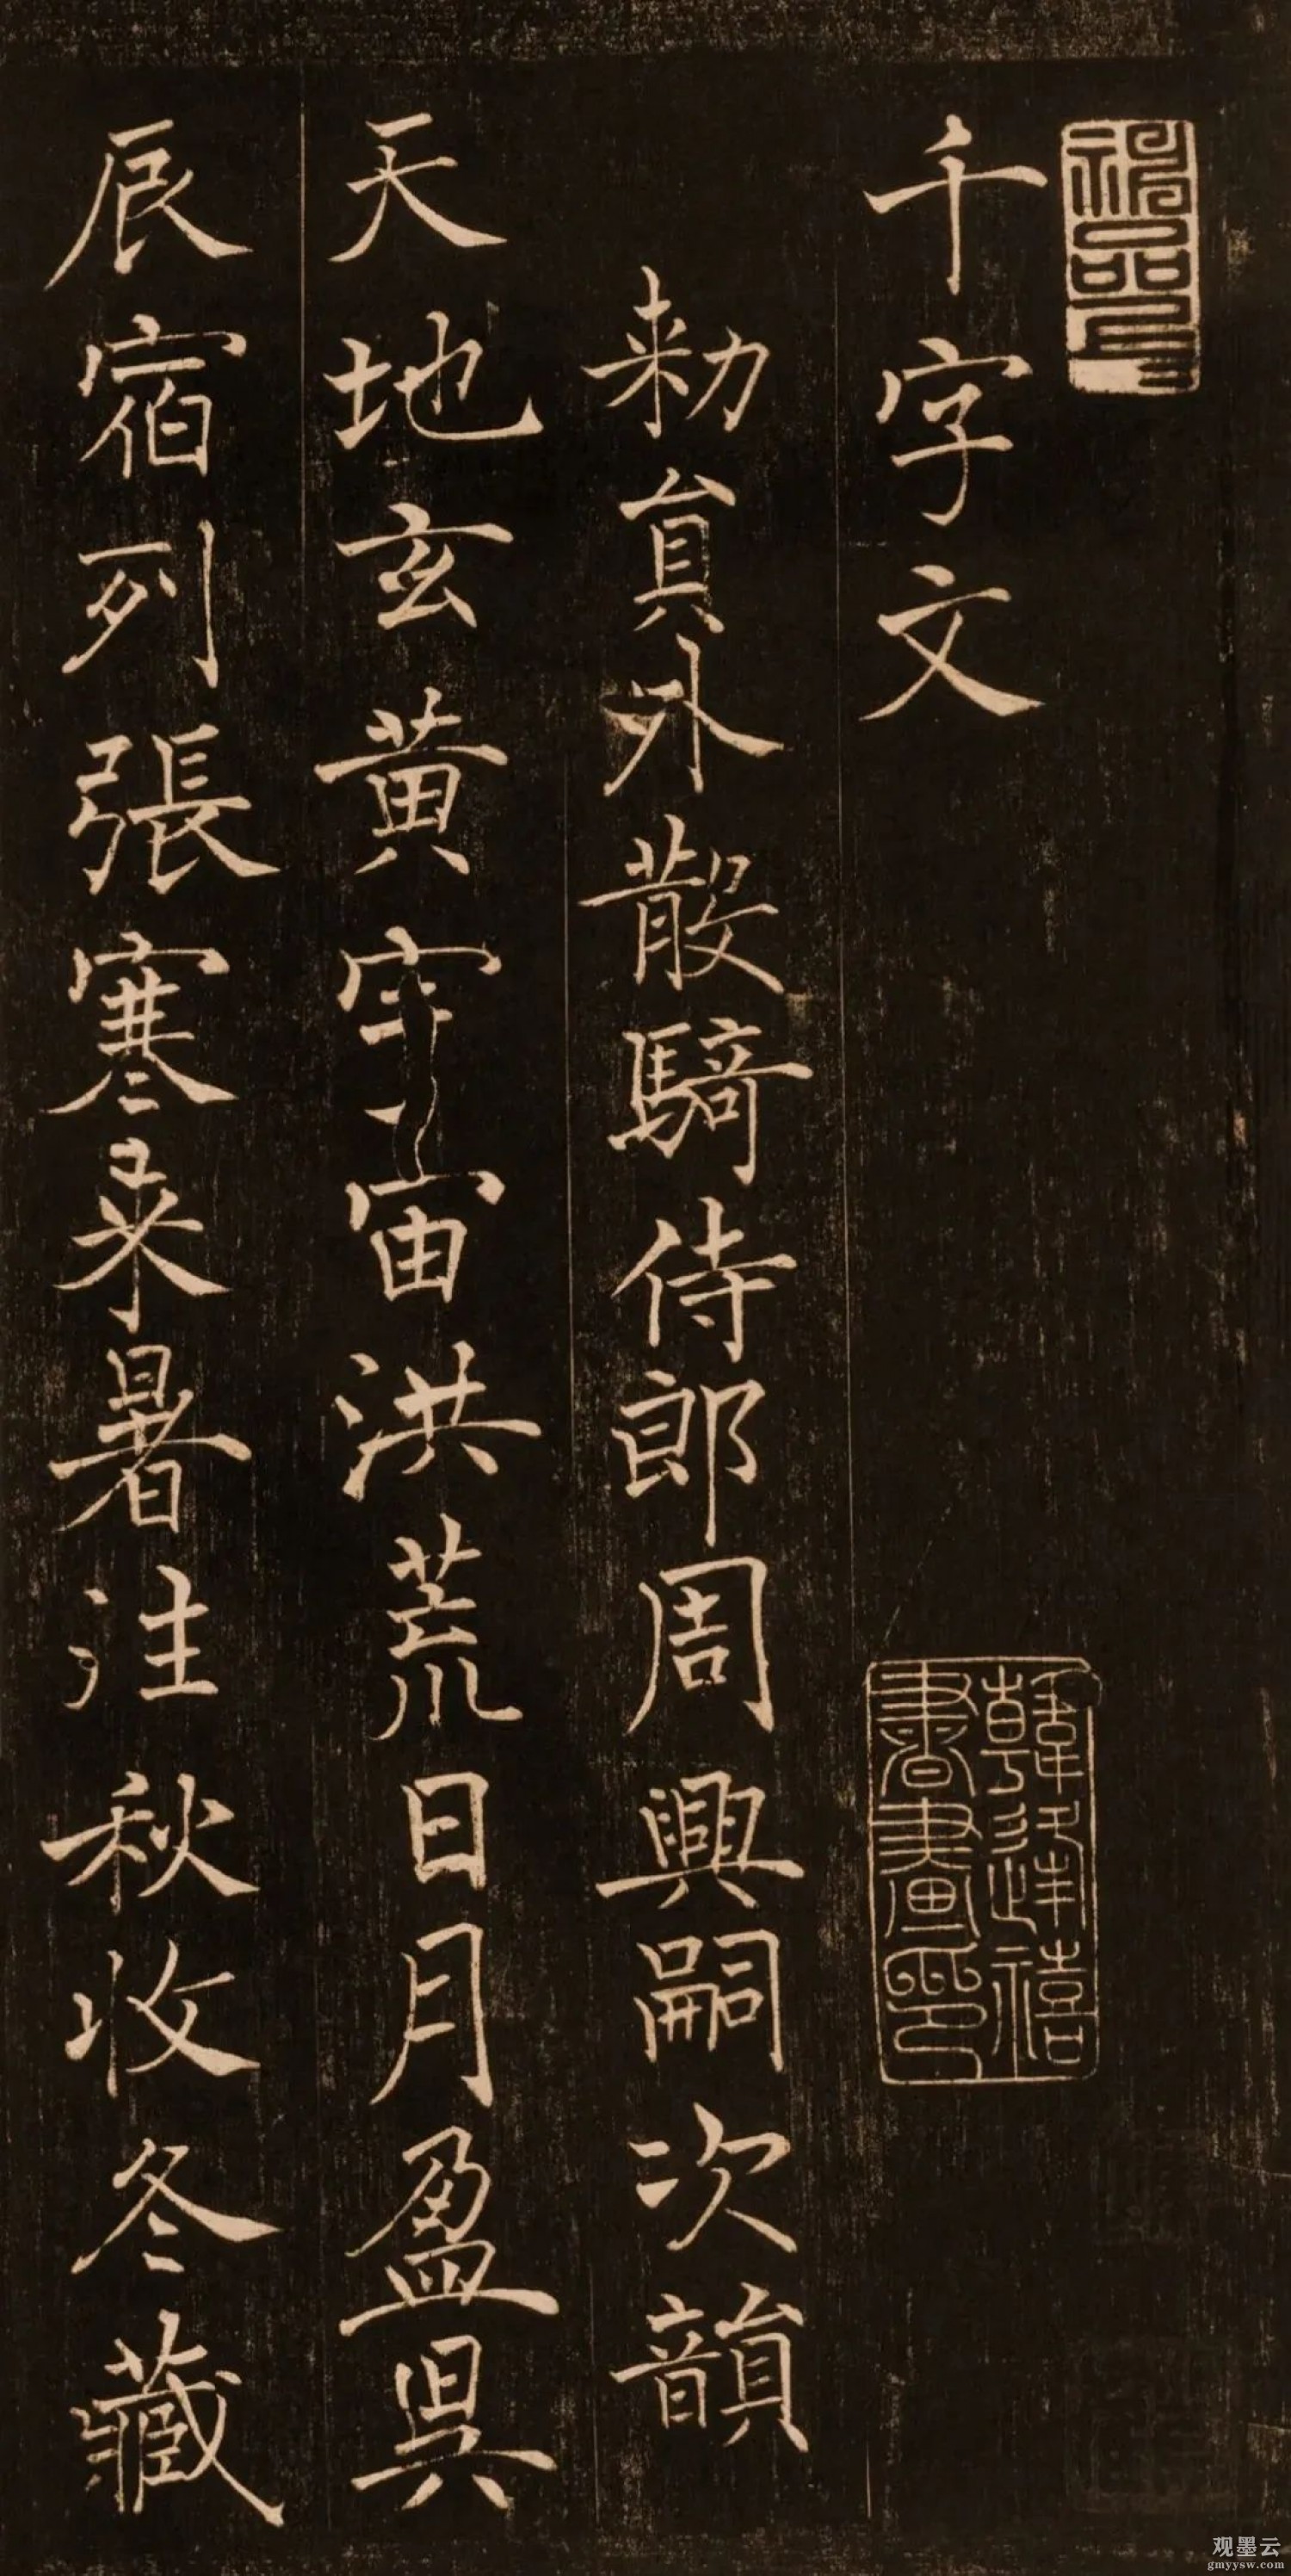 千字文
韓逢禧
書畫印
勑貟外散騎侍郎周興嗣次韻
天地玄黄宇宙洪荒日月盈昃
辰宿列張寒來暑往秋收冬藏
观墨云
gmyysw.com